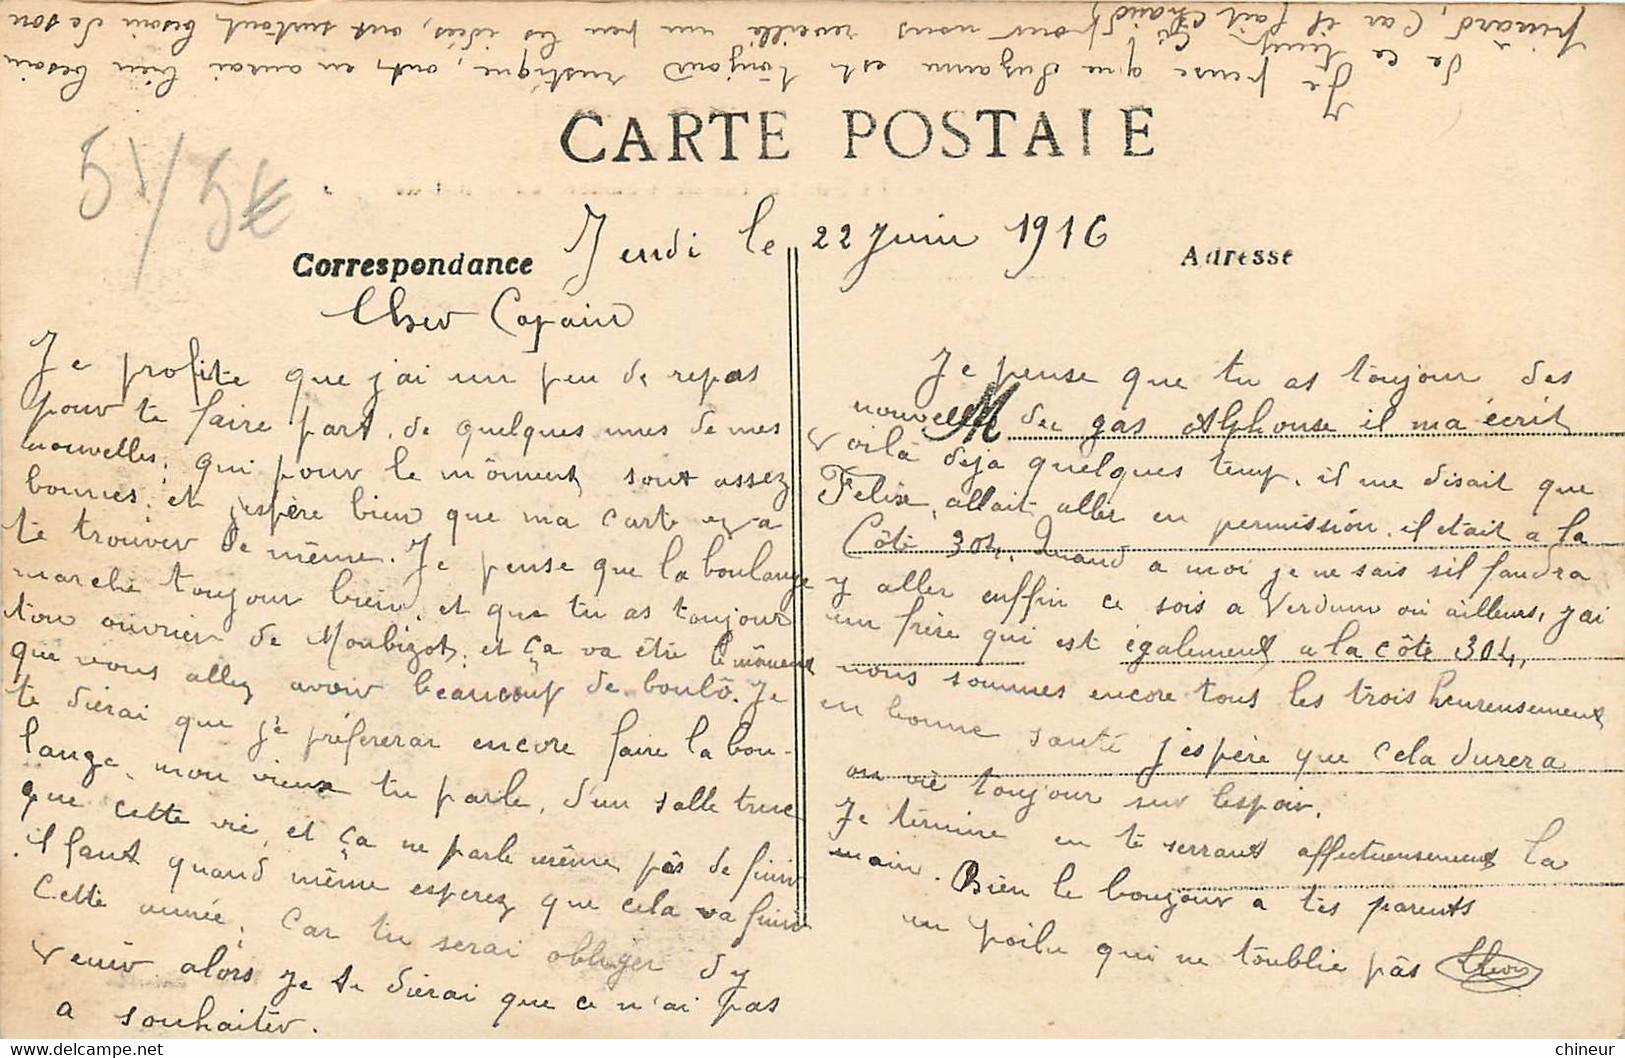 Je pense que Suzanne est toujours rustique, ont en aurai bien besoin
de ce temps ci pour nous reveille un peu les idées, ont surtout besoin de son
pinard, car il fait chaud
CARTE POSTALE
5 / 5€
Jeudi le 22 Juin 1916
Correspondance
Adresse
Cher Copain
Je profite que j'ai un peu de repas
pour te faire part, de quelques unes de mes
nouvelles, qui pour le môment sont assez
bonnes, et j'espère bien que ma carte
te trouver de même. Je pense que la boulange
marche toujour bien, et que tu as toujour
ton ouvrier de Moubizot, et ça va être le môment
que vous allez avoir beaucoup de boulô. Je
te dierai que je préfererai encore faire la bou-
lange, mon vieux tu parle, d'un salle truc
que cette vie, et ça ne parle même pâs de finir
il faut quand même esperez que cela va finir
cette année, car tu serai obliger d'y
venir alors je te dierai que ce n'ai pas
a souhaiter.
Je pense que tu as toujour des
nouvelle du gas Alphonse il ma écrit
M
Voilà deja quelques temp, il me disait que
Felix, allait aller en permission, il était a la
Côte 304, Quand a moi je ne sais sil faudra
y aller enffin ce sois a Verdun ou ailleurs, j'ai
un frère qui est également a la côte 304,
nous sommes encore tous les trois heureusement
en bonne santé j'espère que cela durera
on vie toujour sur l'espoir.
Je termine en te serrant affectueusement la
main. Bien le bonjour a tes parents
un poilu qui ne t'oublie pâs
chineur